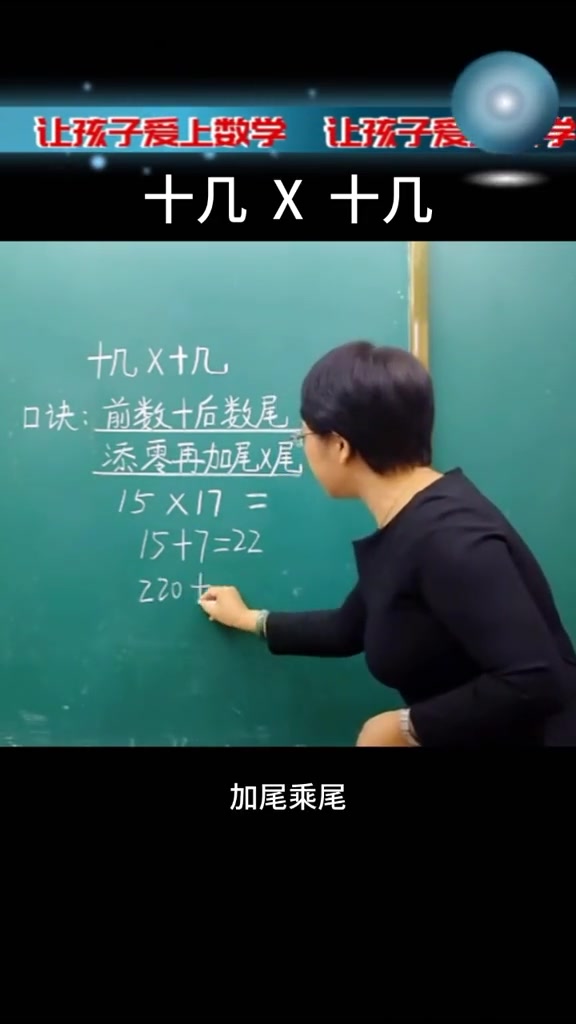 让孩子爱上数学 让孩子爱上数学
十几 X 十几
十几X十几
口诀:前数+后数尾
添零再加尾X尾
15X17=
15+7=22
220+
加尾乘尾